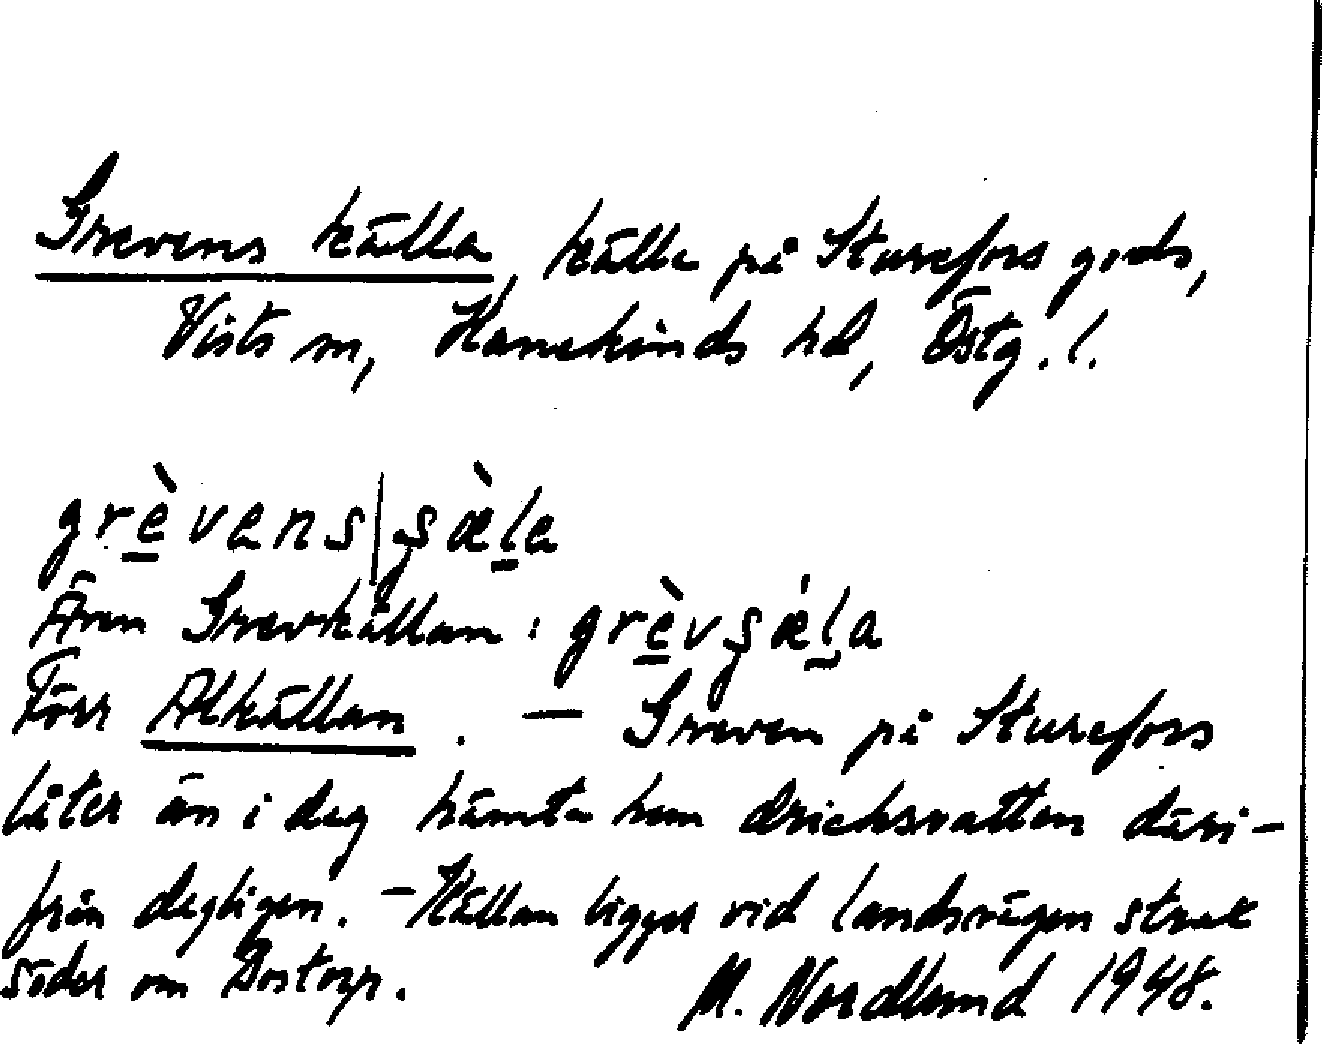 Grevens källa, källa på Sturefors gods,
Vists sn, Hanekinds hd, Östg. l.
grèvens|şæ̀la
Även Grevkällan: grèvşǽla
Förr Alkällan. — Greven på Sturefors
låter än i dag hämta hem dricksvatten däri-
från dagligen. — Källan ligger vid landsvägen strax
söder om Bostorp.
M. Nordlund 1948.